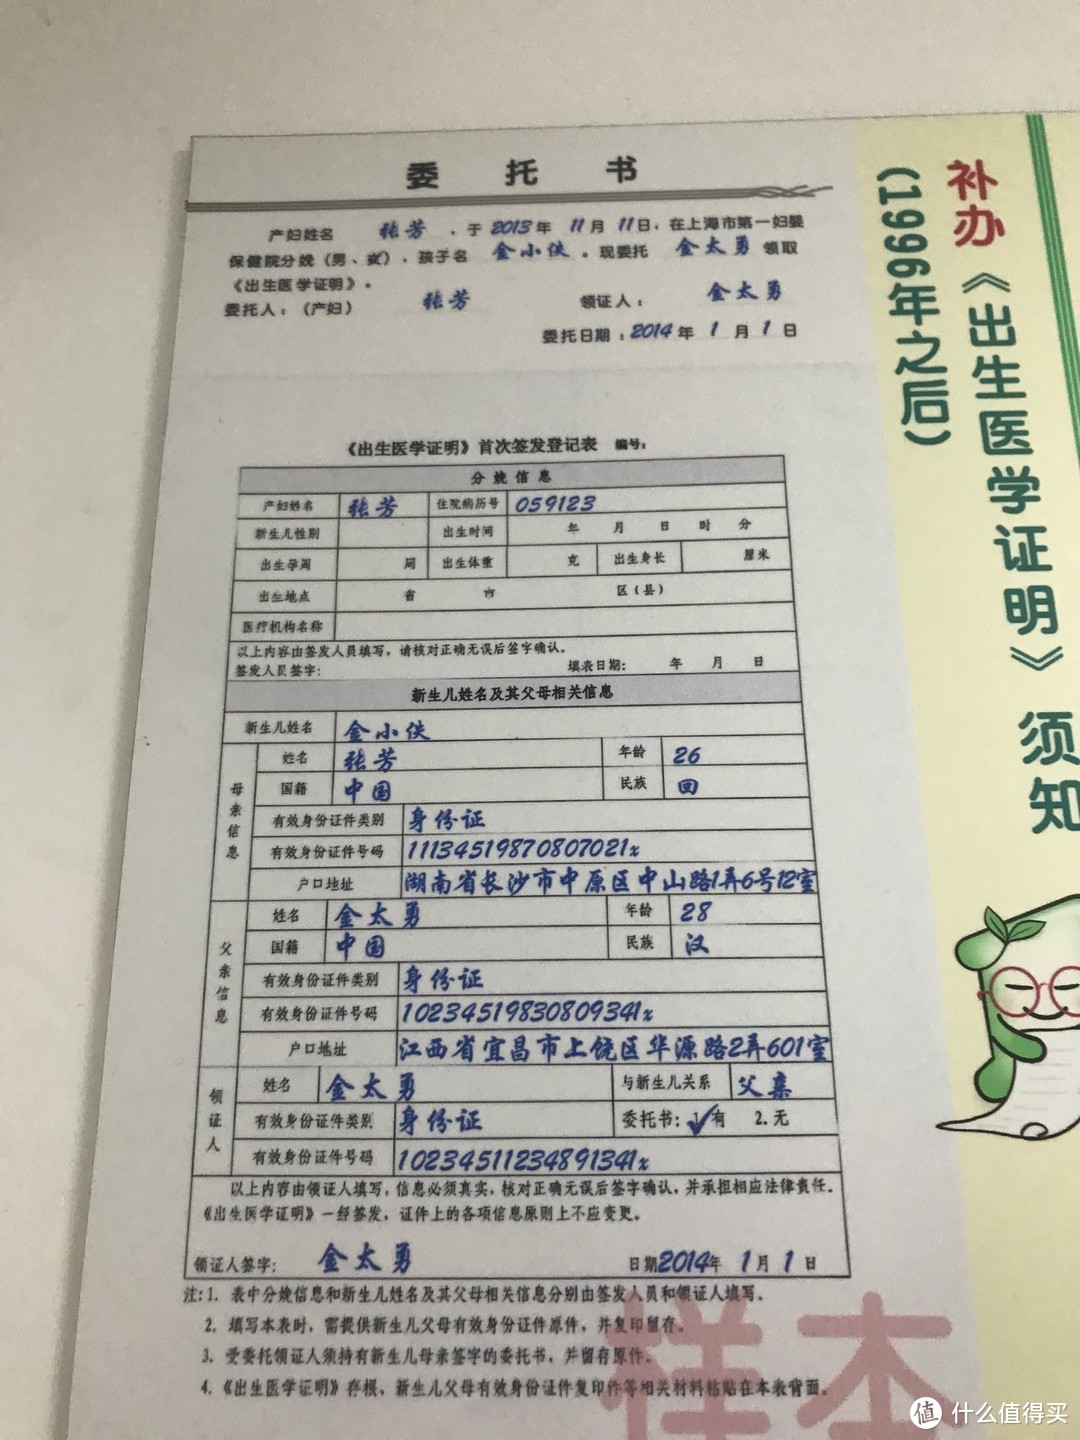 委托书
产妇姓名 张芳 ，于 2013年 11月 11日，在上海市第一妇婴
保健院分娩（男、女），孩子名 金小侠 。现委托 金太勇 领取
《出生医学证明》。
委托人：（产妇） 张芳 领证人： 金太勇
委托日期：2014 年 1 月 1 日
《出生医学证明》首次签发登记表 编号：
分娩信息
产妇姓名 张芳 住院病历号 059123
新生儿性别 出生时间 年 月 日 时 分
出生孕周 周 出生体重 克 出生身长 厘米
出生地点 省 市 区（县）
医疗机构名称
以上内容由签发人员填写，请核对正确无误后签字确认。
签发人员签字： 填表日期： 年 月 日
新生儿姓名及其父母相关信息
新生儿姓名 金小侠
母亲信息
姓名 张芳 年龄 26
国籍 中国 民族 回
有效身份证件类别 身份证
有效身份证件号码 11134519870807021x
户口地址 湖南省长沙市中原区中山路1弄6号12室
父亲信息
姓名 金太勇 年龄 28
国籍 中国 民族 汉
有效身份证件类别 身份证
有效身份证件号码 10234519830809341x
户口地址 江西省宜昌市上饶区华源路2弄601室
领证人
姓名 金太勇 与新生儿关系 父亲
有效身份证件类别 身份证 委托书：1.有 2.无
有效身份证件号码 10234511234891341x
以上内容由领证人填写，信息必须真实，核对正确无误后签字确认，并承担相应法律责任。
《出生医学证明》一经签发，证件上的各项信息原则上不应变更。
领证人签字： 金太勇 日期2014年 1月 1日
注：1. 表中分娩信息和新生儿姓名及其父母相关信息分别由签发人员和领证人填写。
2. 填写本表时，需提供新生儿父母有效身份证件原件，并复印留存。
3. 受委托领证人须持有新生儿母亲签字的委托书，并留存原件。
4.《出生医学证明》存根、新生儿父母有效身份证件复印件等相关材料粘贴在本表背面。
样本
补办《出生医学证明》须知
（1996年之后）
值 什么值得买